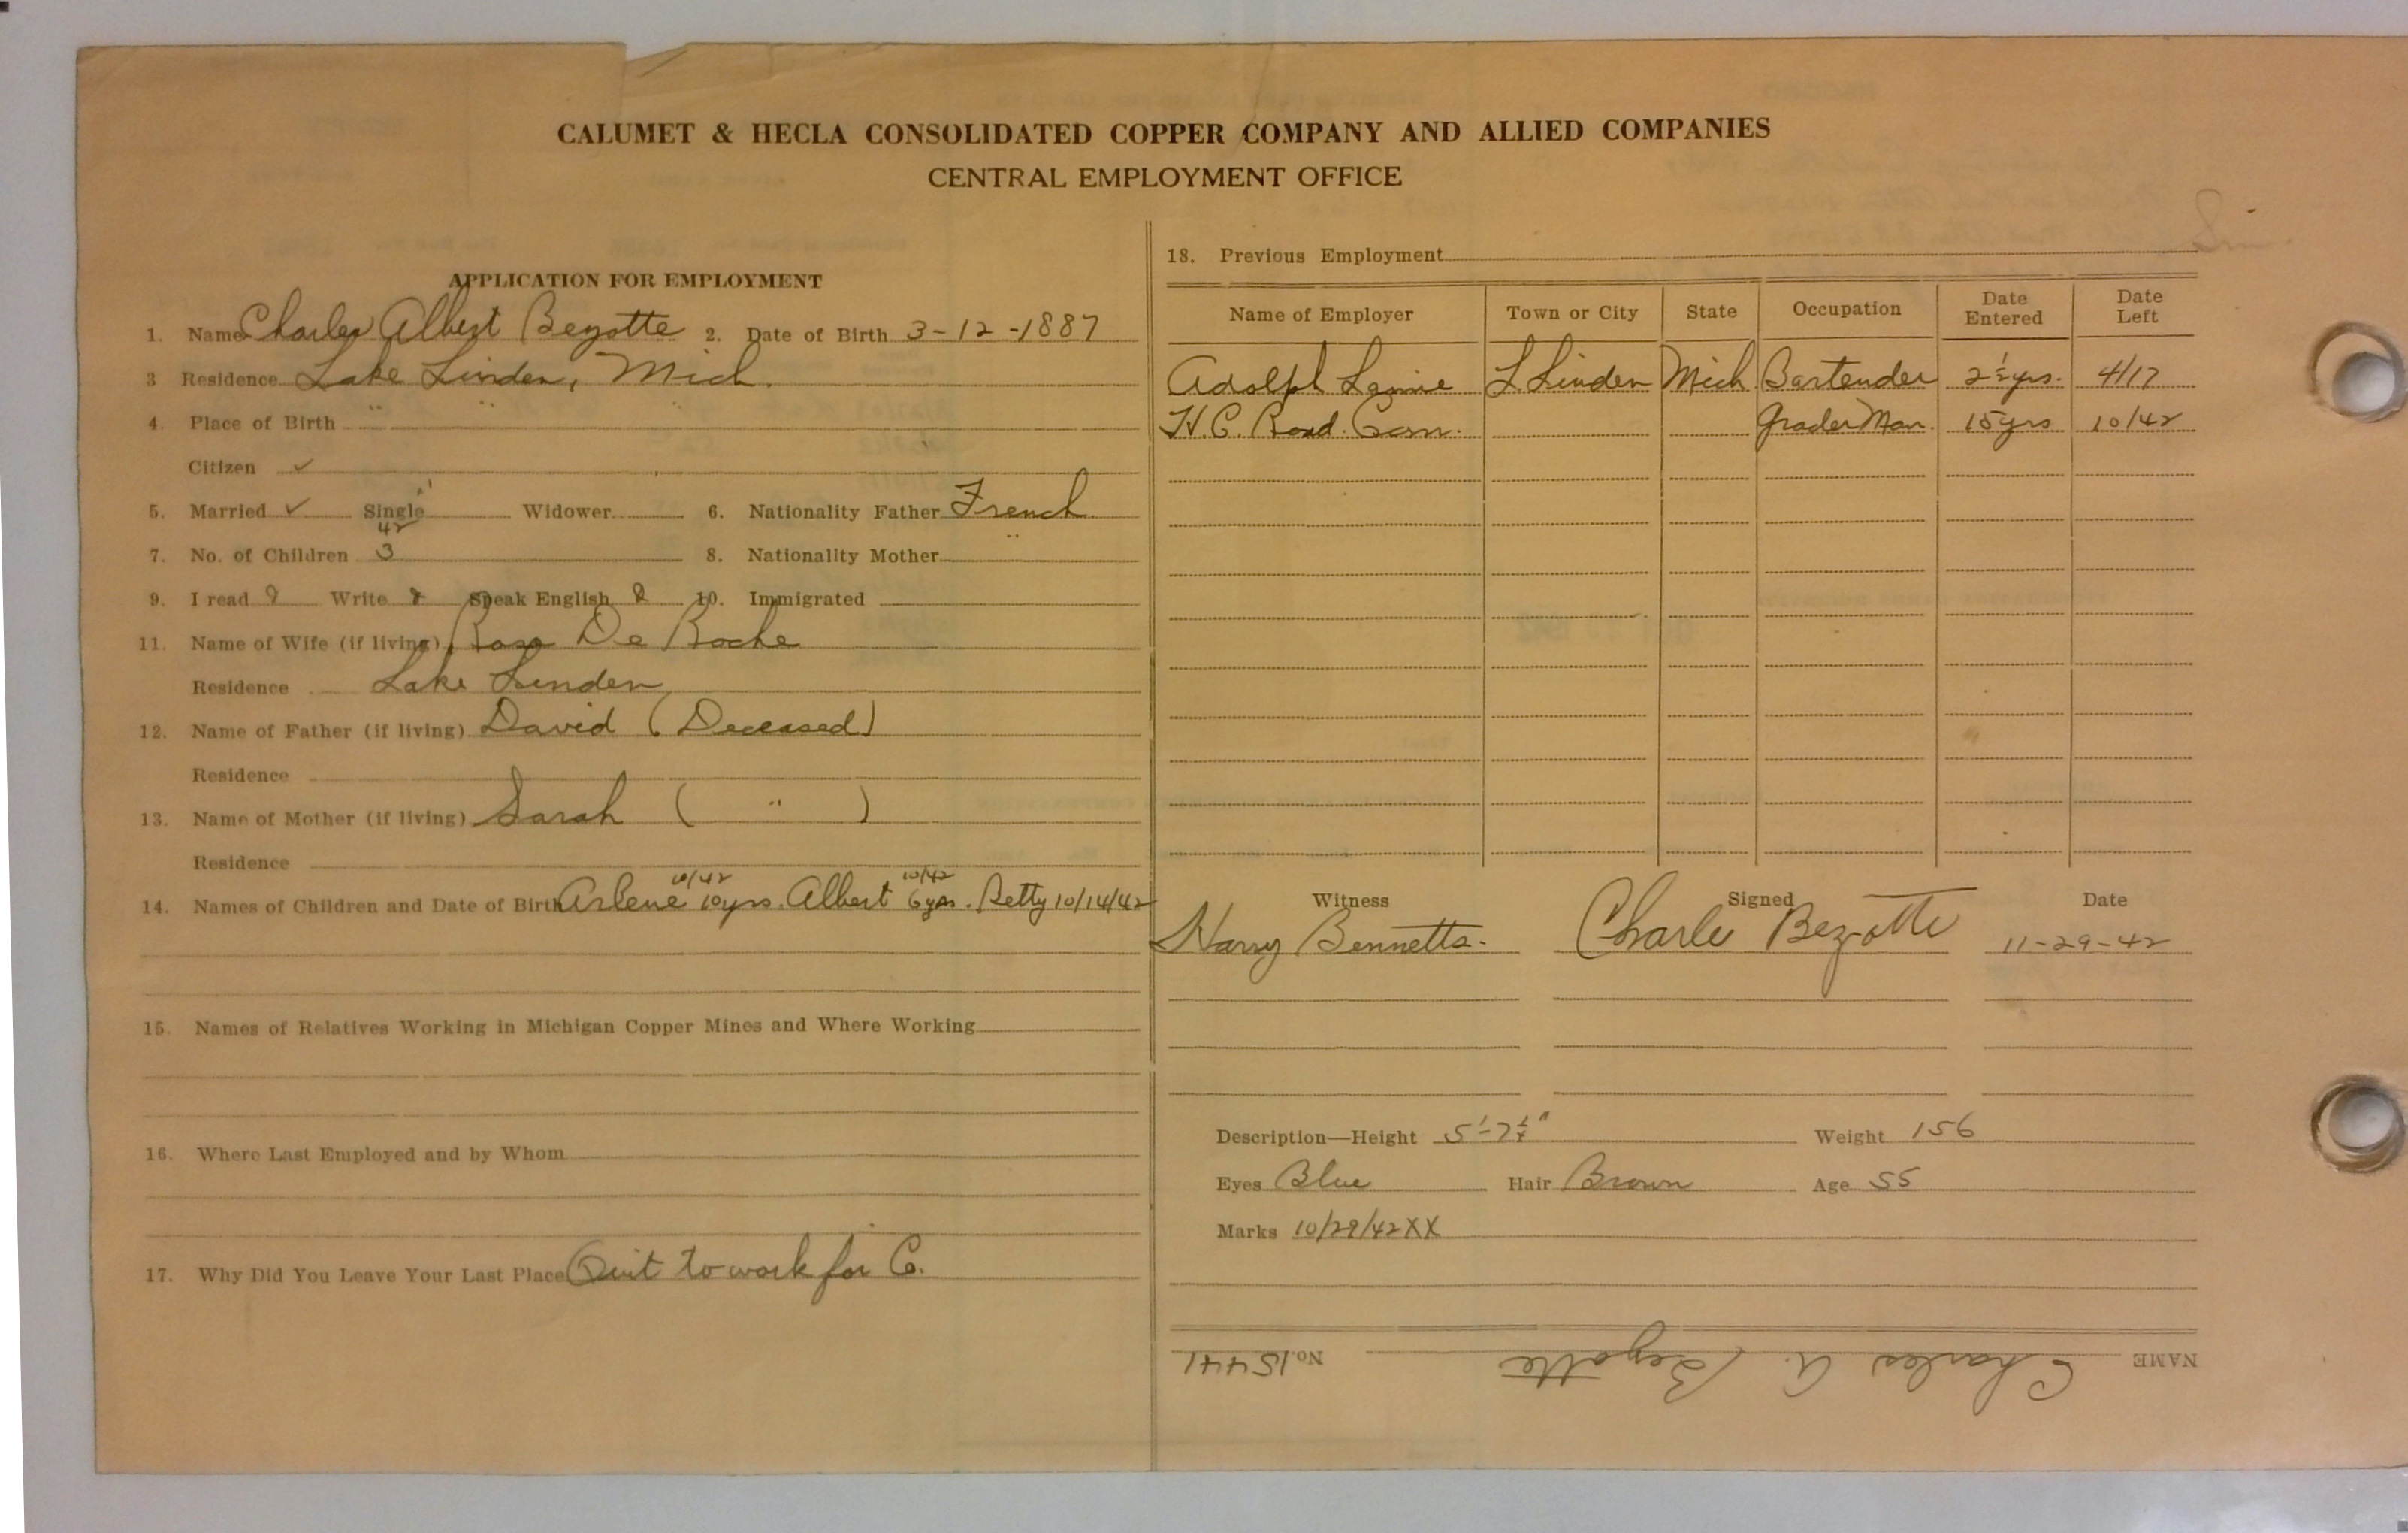 CALUMET & HECLA CONSOLIDATED COPPER COMPANY AND ALLIED COMPANIES
CENTRAL EMPLOYMENT OFFICE
APPLICATION FOR EMPLOYMENT
1. Name Charles Albert Bezotte 2. Date of Birth 3-12-1887
3 Residence Lake Linden, Mich.
4. Place of Birth " " "
Citizen ✓
5. Married ✓ Single Widower 6. Nationality Father French
42
7. No. of Children 3 8. Nationality Mother "
9. I read Write Speak English 10. Immigrated
11. Name of Wife (if living) Rose De Roche
Residence Lake Linden
12. Name of Father (if living) David (Deceased)
Residence
13. Name of Mother (if living) Sarah ( " )
Residence
10/42 10/42
14. Names of Children and Date of Birth Arlene 10yrs. Albert 6yrs. Betty 10/14/42
15. Names of Relatives Working in Michigan Copper Mines and Where Working
16. Where Last Employed and by Whom
17. Why Did You Leave Your Last Place Quit to work for Co.
18. Previous Employment
Name of Employer Town or City State Occupation Date Entered Date Left
Adolph L. Linden Mich Bartender 2½yrs. 4/17
H.C. Road Com. Grader Man. 15yrs 10/42
Witness Signed Date
Harry Bennetts. Charles Bezotte 11-29-42
Description—Height 5'-7¼" Weight 156
Eyes Blue Hair Brown Age 55
Marks 10/29/42XX
NAME Charles A. Bezotte No. 15441